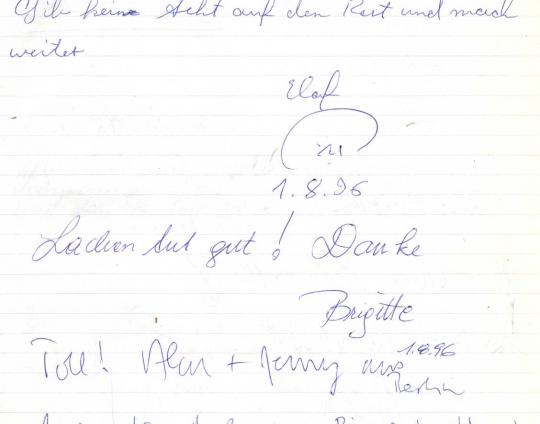 Gib keine Acht auf den Rest und mach
weiter
1.8.96
Lachen tut gut! Danke
Brigitte
Toll! Alex + Jenny aus 1.8.96
Berlin